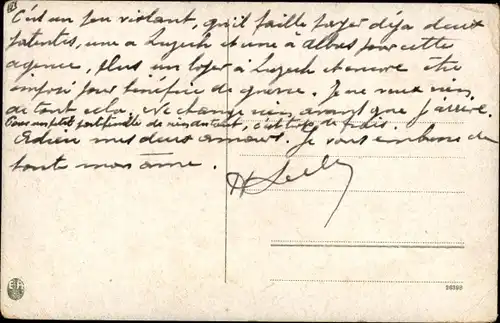 C'est un peu violent, qu'il faille payer déjà deux
patentes, une à Luzech et une à Albas pour cette
agence, plus un loyer à Luzech et encore être
imposé pour bénéfice de guerre. Je ne veux rien
de tout cela. Ne change rien avant que j'arrive.
Pour un petit portefeuille de rien du tout, c'est trop de frais.
Adieu mes deux amours. Je vous embrasse de
toute mon âme.
56996